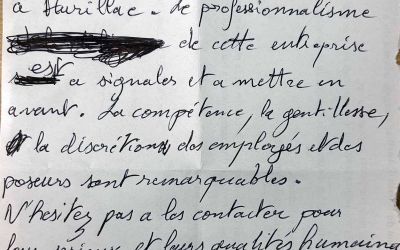 a Aurillac. Le professionnalisme
de cette entreprise
est a signaler et a mettre en
avant. La compétence, la gentillesse,
la discrétion des employés et des
poseurs sont remarquables.
N'hésitez pas a les contacter pour
leur sérieux et leurs qualités humaines